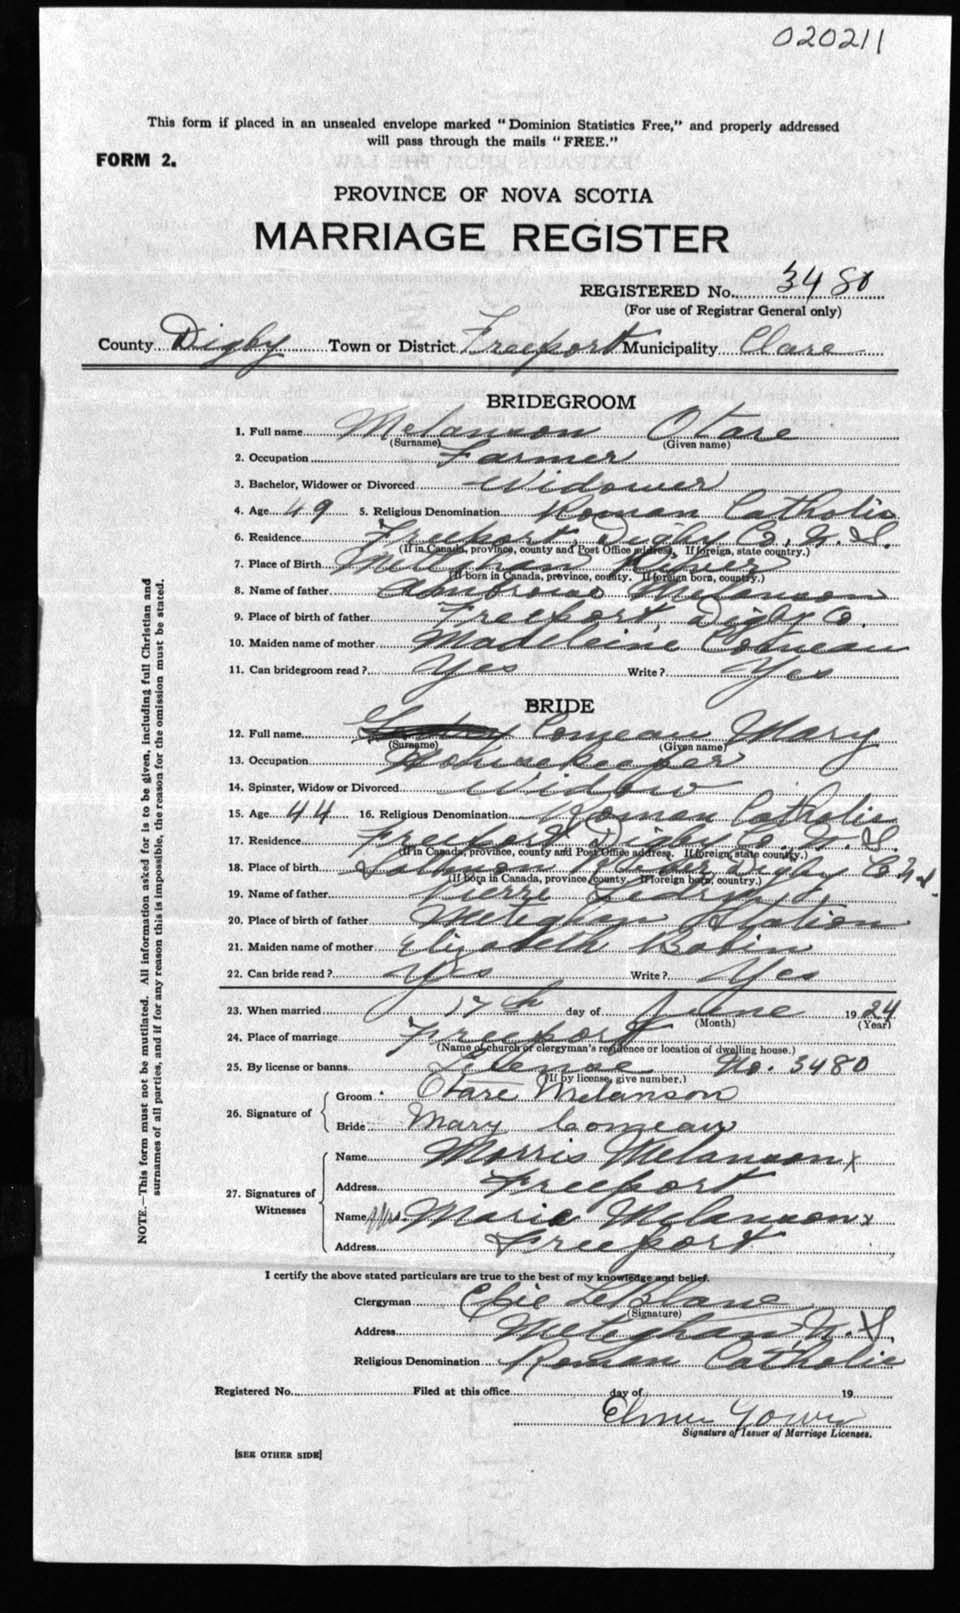 020211
This form if placed in an unsealed envelope marked "Dominion Statistics Free," and properly addressed
will pass through the mails "FREE."
FORM 2.
PROVINCE OF NOVA SCOTIA
MARRIAGE REGISTER
REGISTERED No. 3480
(For use of Registrar General only)
County Digby Town or District Freeport Municipality Clare
BRIDEGROOM
1. Full name Melanson Otare
(Surname) (Given name)
2. Occupation Farmer
3. Bachelor, Widower or Divorced Widower
4. Age 49 5. Religious Denomination Roman Catholic
6. Residence Freeport, Digby Co. N. S.
(If in Canada, province, county and Post Office address. If foreign, state country.)
7. Place of Birth Meteghan River
(If born in Canada, province, county. If foreign born, country.)
8. Name of father Ambrose Melanson
9. Place of birth of father Freeport, Digby Co.
10. Maiden name of mother Madeleine Comeau
11. Can bridegroom read? Yes Write? Yes
BRIDE
12. Full name Comeau Mary
(Surname) (Given name)
13. Occupation Housekeeper
14. Spinster, Widow or Divorced Widow
15. Age 44 16. Religious Denomination Roman Catholic
17. Residence Freeport Digby Co. N. S.
(If in Canada, province, county and Post Office address. If foreign, state country.)
18. Place of birth Salmon River Digby Co N.S.
(If born in Canada, province county. If foreign born, country.)
19. Name of father Pierre
20. Place of birth of father Meteghan Station
21. Maiden name of mother Elizabeth Babin
22. Can bride read? Yes Write? Yes
23. When married 17th day of June 1924
(Month) (Year)
24. Place of marriage Freeport
(Name of church or clergyman's residence or location of dwelling house.)
25. By license or banns License No. 3480
(If by license, give number.)
26. Signature of
Groom Otare Melanson
Bride Mary Comeau
27. Signatures of Witnesses
Name Morris Melanson x
Address Freeport
Name Mrs. Marie Melanson x
Address Freeport
I certify the above stated particulars are true to the best of my knowledge and belief.
Clergyman LeBlanc
(Signature)
Address Meteghan, N. S.
Religious Denomination Roman Catholic
Registered No. Filed at this office day of 19
Elmer
Signature of Issuer of Marriage Licenses.
[SEE OTHER SIDE]
NOTE.—This form must not be mutilated. All information asked for is to be given, including full Christian and
surnames of all parties, and if for any reason this is impossible, the reason for the omission must be stated.